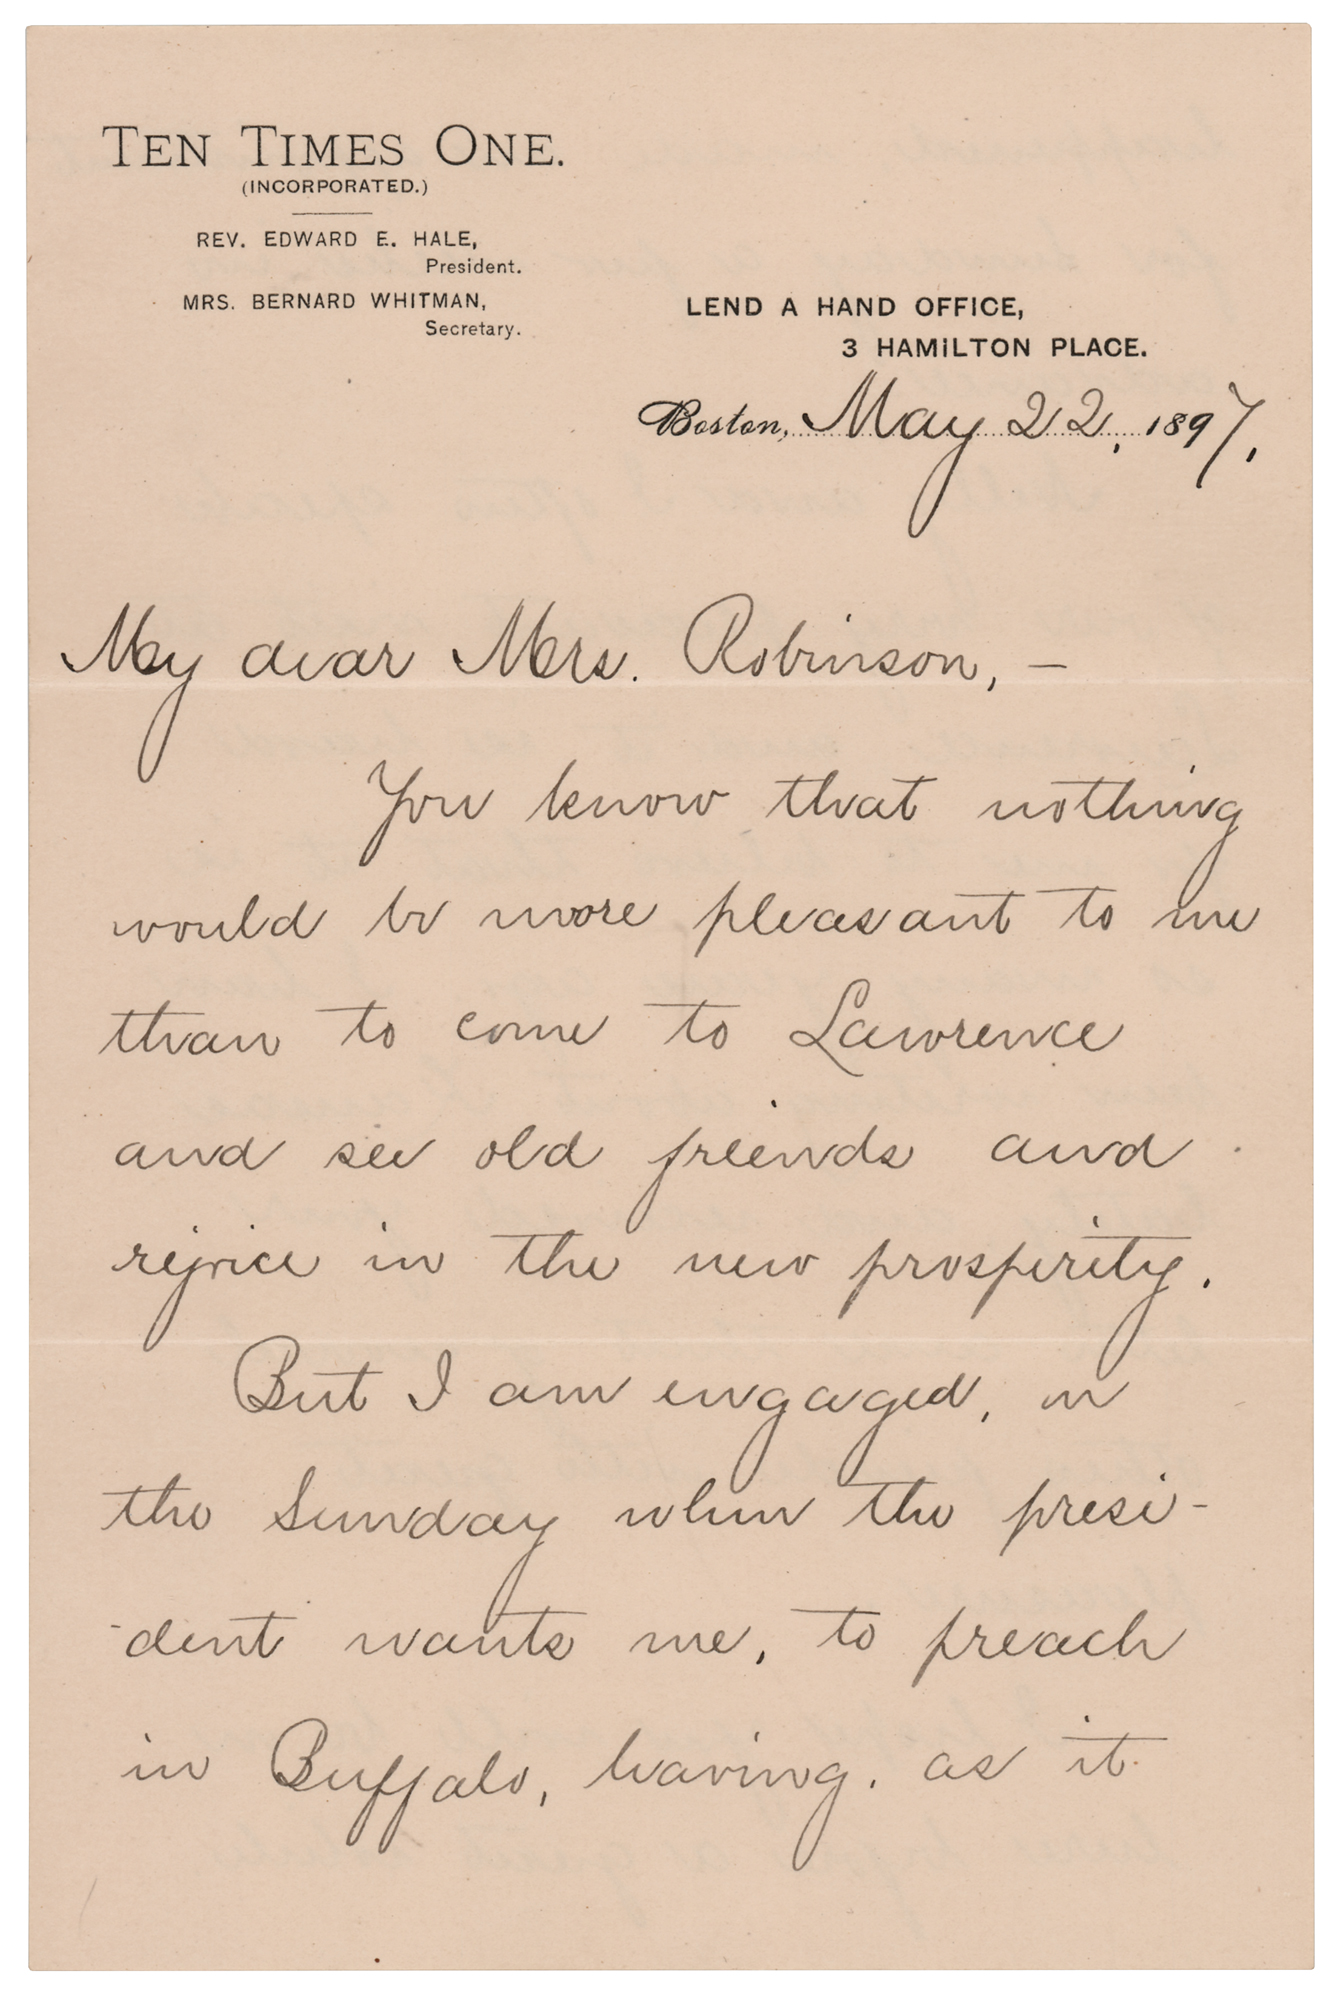 TEN TIMES ONE.
(INCORPORATED.)
REV. EDWARD E. HALE,
President.
MRS. BERNARD WHITMAN,
Secretary.
LEND A HAND OFFICE,
3 HAMILTON PLACE.
Boston, May 22, 1897.
My dear Mrs. Robinson, —
You know that nothing
would be more pleasant to me
than to come to Lawrence
and see old friends and
rejoice in the new prosperity.
But I am engaged, on
the Sunday when the presi-
-dent wants me, to preach
in Buffalo, leaving, as it